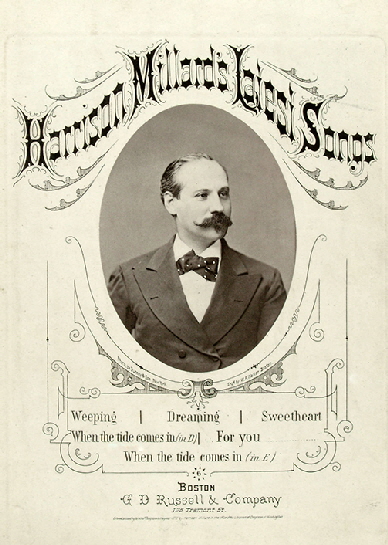 Harrison Millard's Latest Songs
Weeping | Dreaming | Sweetheart
When the tide comes in (in D) | For you
When the tide comes in (in F)
BOSTON
G D Russell & Company
126 TREMONT ST.